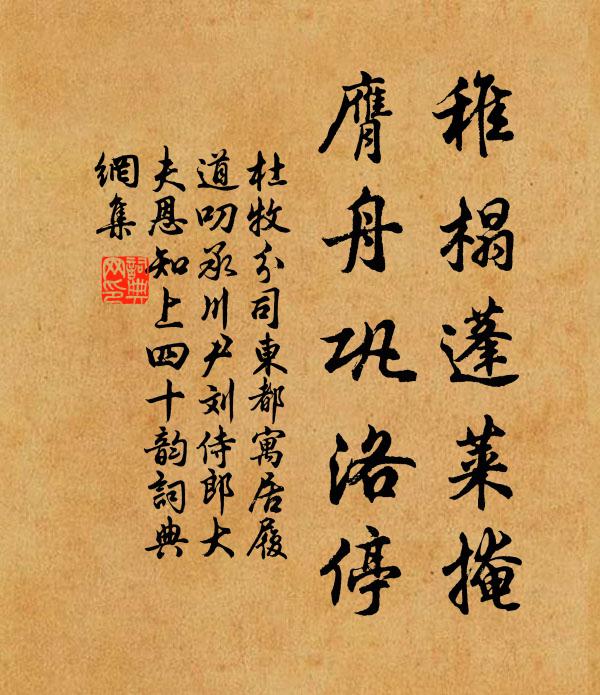 稚榻蓬萊掩
膺舟巩洛停
杜牧分司東都寓居履
道叨承川尹刘侍郎大
夫恩知上四十韵詞典
網集
詞典
网印